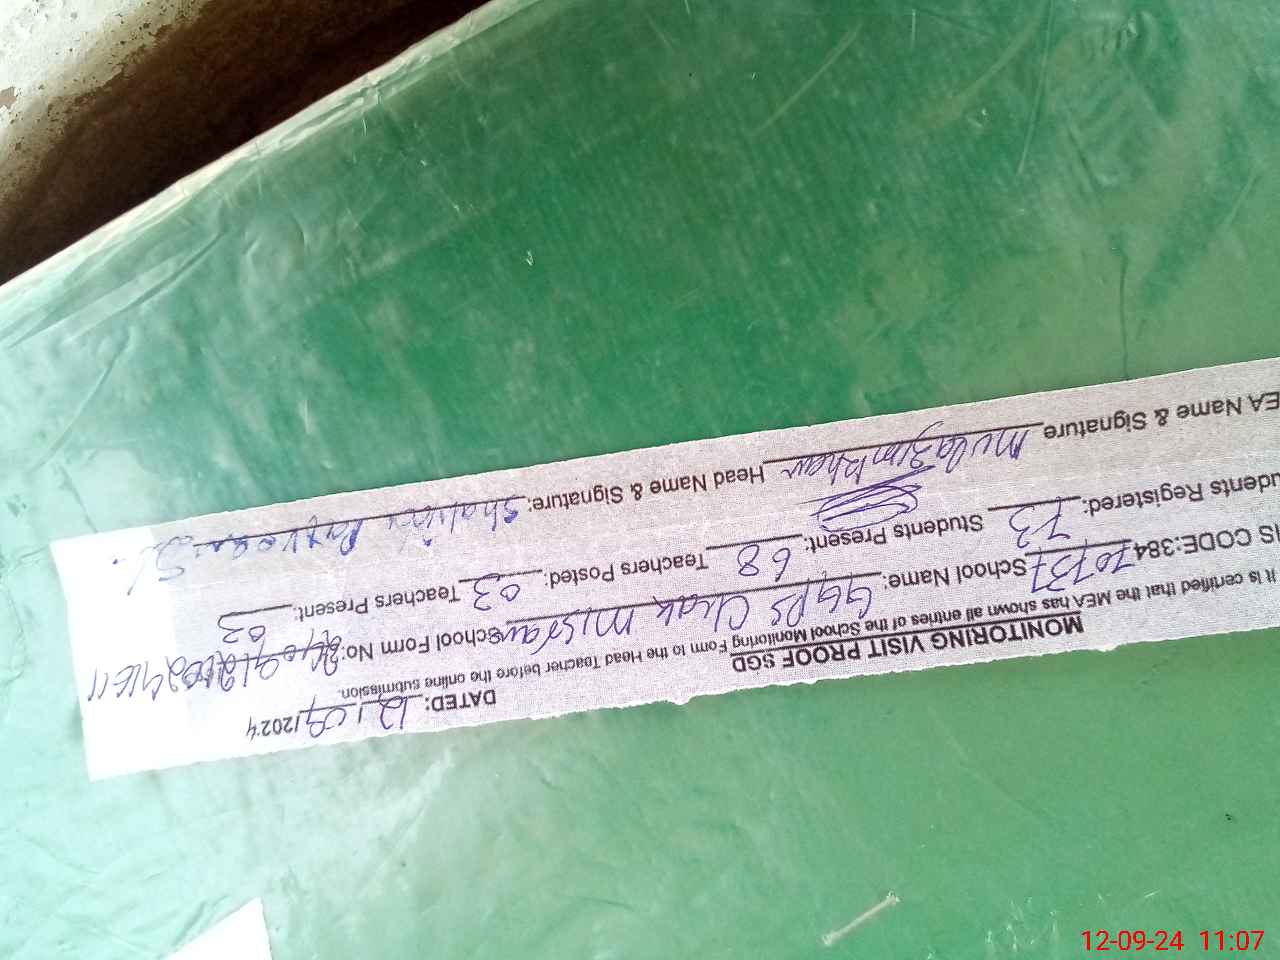 MONITORING VISIT PROOF SGD DATED: 12/09/2024
It is certified that the MEA has shown all entries of the School Monitoring Form to the Head Teacher before the online submission.
IS CODE:38470737 School Name: GGPS Chak Misran School Form No:
udents Registered: 73 Students Present: 68 Teachers Posted: 03 Teachers Present: 03
EA Name & Signature Head Name & Signature: Shahida Parveen
12-09-24 11:07